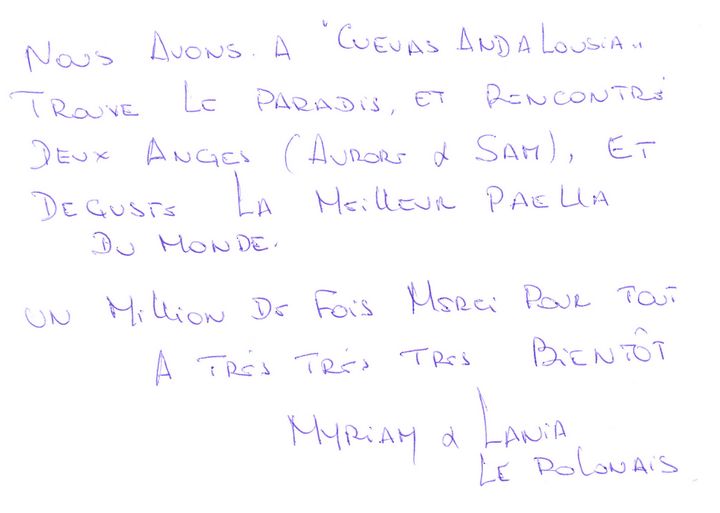 NOUS AVONS. A "CUEVAS ANDALOUSIA"
TROUVE LE PARADIS, ET RENCONTRÉ
DEUX ANGES (AURORE & SAM), ET
DEGUSTE LA MEILLEUR PAELLA
DU MONDE.
UN MILLION DE FOIS MERCI POUR TOUT
A TRÉS TRÉS TRES BIENTÔT
MYRIAM & LANIA
LE POLONAIS